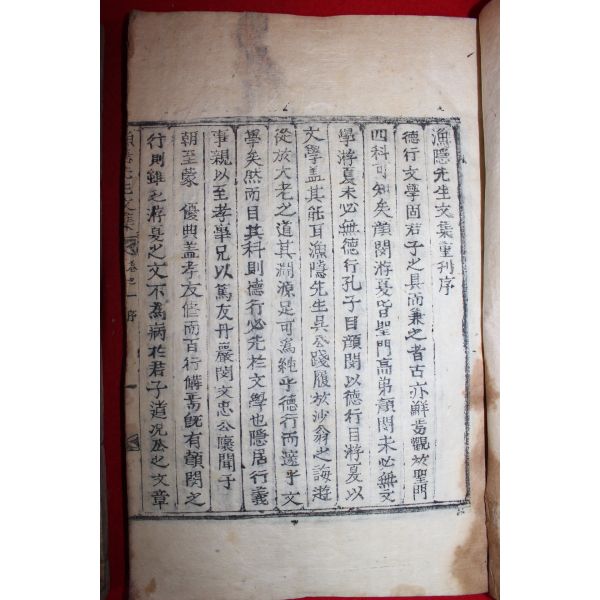 漁隱先生文集重刊序
德行文學固君子之具而兼之者古亦鮮焉觀於聖門
四科可知矣顔閔游夏皆聖門高弟顔閔未必無文
學游夏未必無德行孔子目顔閔以德行目游夏以
文學盖其旺耳漁隱先生吳公踐履於沙翁之誨遊
從於大老之道其淵源足可爲純乎德行而邃乎文
學矣然而目其科則德行必先於文學也隱居行義
事親以至孝畢兄以篤友丹巖閔文忠公褏聞于
朝至蒙　優典盖孝友修而百行備焉旣有顔閔之
行則雖乏游夏之文不爲病於君子道況公之文章
漁隱先生文集　卷之一　序　一